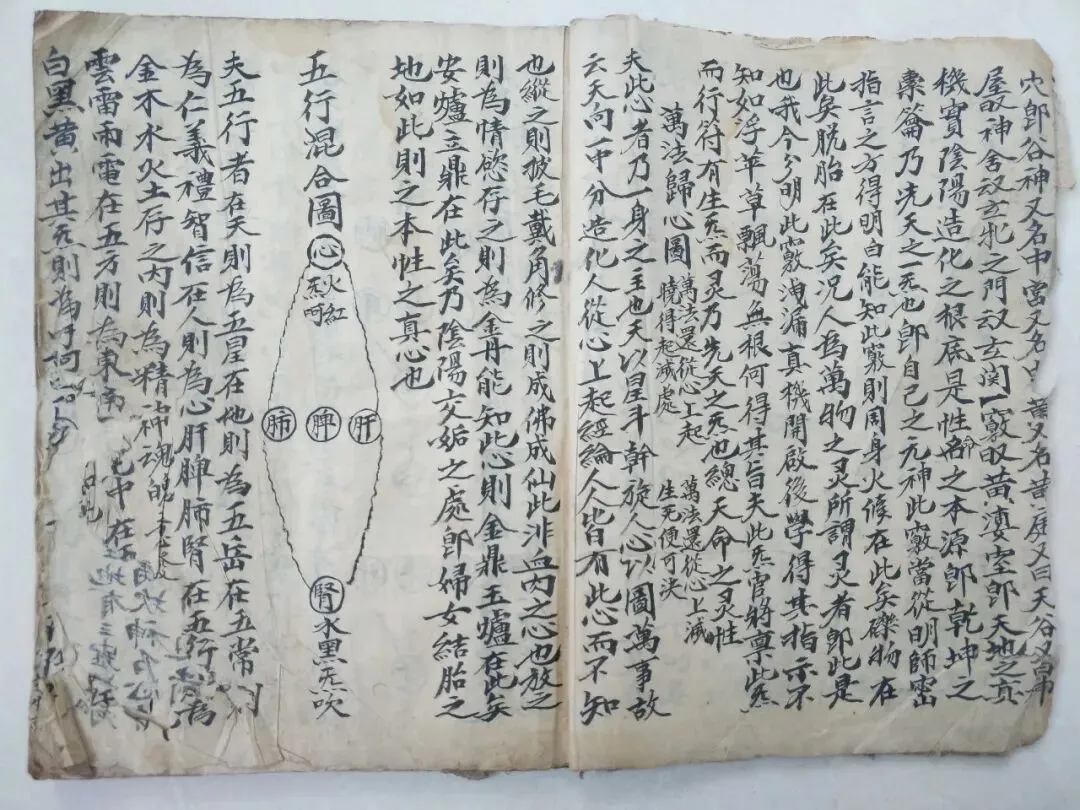 穴郎谷神又名中宮又名中黃又名黃庭又曰天谷又曰中
屋㕝神舍㕝玄牝之門㕝玄関一竅㕝黄㕓室郎天地之真
機實陰陽造化之根底是性命之本源郎乾坤之
橐籥乃先天之炁也郎自己之元神此竅當從明師密
指言之方得明白能知此竅則周身火候在此矣礫物在
此矣脱胎在此矣况人為萬物之灵所謂灵者郎此是
也我今分明此竅洩漏真機開啟後學得其指示不
知如浮萍草飄蕩無根何得其旨夫此炁宮將稟此炁
而行符有生炁而灵乃先天之炁也總天命之灵性
萬法歸心圖
萬法還從心上起
曉得起滅處
萬法還從心上滅
生死便可決
夫此心者乃一身之主也天以星斗斡旋人心以圖萬事故
云天向一中分造化人從心上起經綸人人皆有此心而不知
也縱之則披毛戴角修之則成佛成仙此非血肉之心也放之
則為情慾存之則為金丹能知此心則金鼎玉爐在此矣
安爐立鼎在此矣乃陰陽交姤之處郎婦女結胎之
地如此則之本性之真心也
五行混合圖
心
火紅
炁呵
肺 脾 肝
腎
水黑炁吹
夫五行者在天則為五星在地則為五岳在五常則
為仁義禮智信在人則為心肝脾肺腎在五行則為
金木水火土存之内則為精神魂魄
雲雷雨電在五方則為東南
白黑黄出其炁則為呼呵